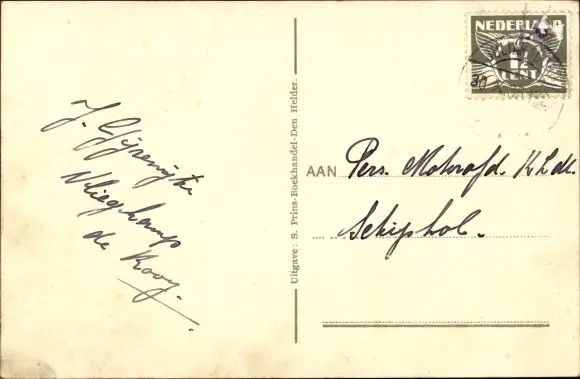 NEDERLAND
1½
CENT
J. Gijsenijte
Vliegkamp
de Kooy.
Uitgave: S. Prins-Boekhandel-Den Helder.
AAN Pers. Motorafd. K.L.M.
Schiphol.